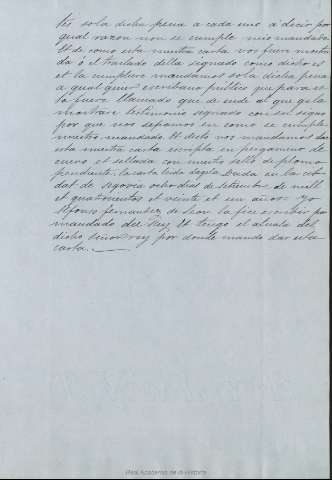 dés so la dicha pena a cada uno a decir por
qual razon non se cumple mio mandado
Et de como esta nuestra carta vos fuere mostra
da ó el traslado della signado como dicho es
et la cumpliere mandamos so la dicha pena
a qual quier escribano publico que para es
to fuere llamado que de ende al que gela
mostrare testimonio signado con su signo
por que nos sepamos en como se cumple
nuestro mandado. Et desto nos mandamos dar
esta nuestra carta escripta en pergamino de
cuero et sellada con nuestro sello de plomo
pendiente. la carta leida dagela. Dada en la cib
dat de Segovia ocho dias de setiembre de mill
et quatrocientos et veinte et un años = yo
Alfonso fernandez de Leon la fice escrebir por
mandado del Rey Et tengo el alvala del
dicho señor rey por donde mando dar esta
carta.
Real Academia de la Historia